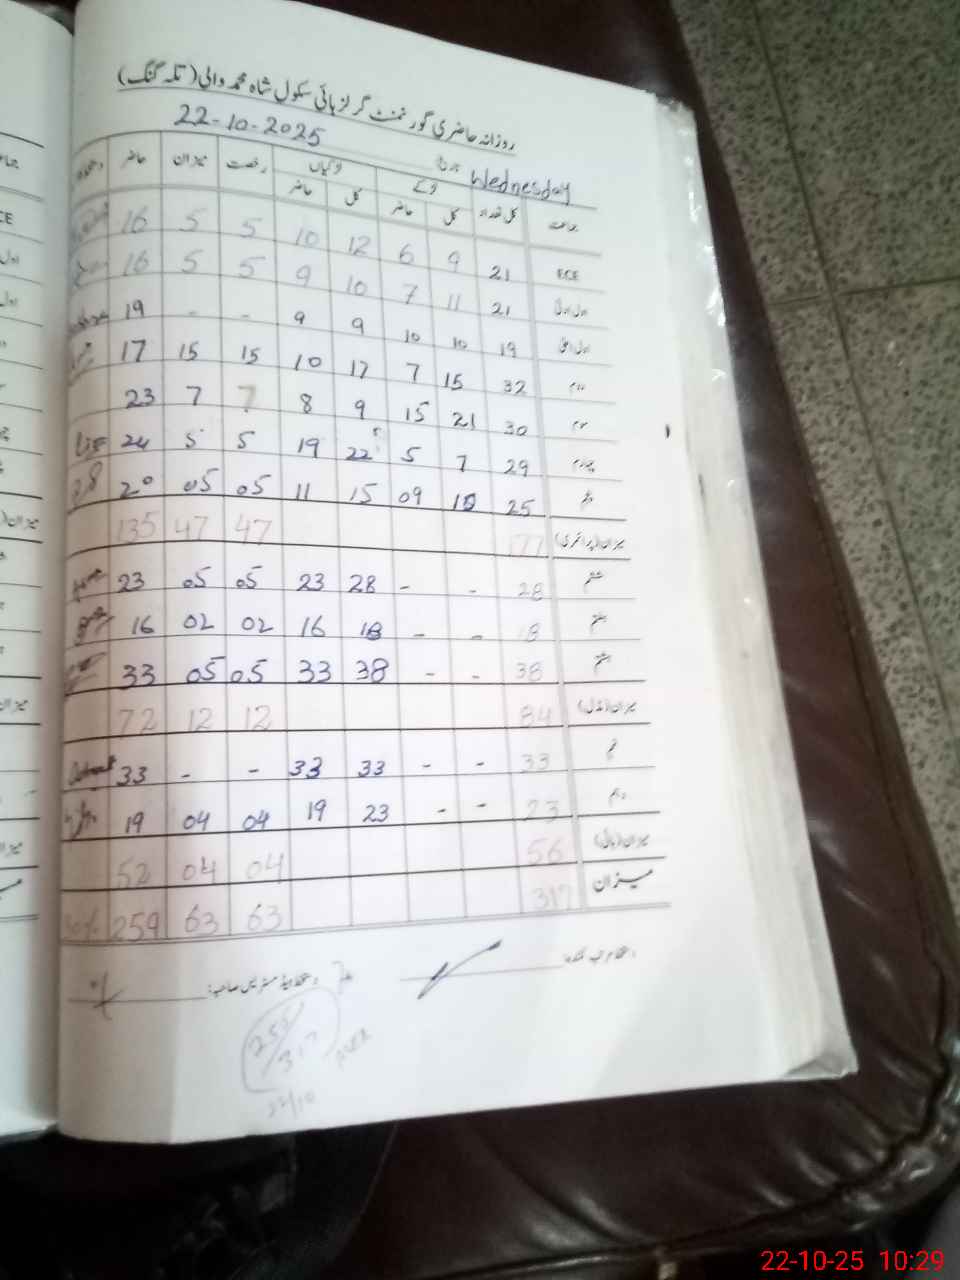 روزانہ حاضری گورنمنٹ گرلز ہائی سکول شاہ محمد والی (تلہ گنگ)
22-10-2025 Wednesday
جماعت کل تعداد لڑکے لڑکیاں رخصت میزان حاضر
کل حاضر کل حاضر
ECE 21 9 6 12 10 5 5 16
اول ادنیٰ 21 11 7 10 9 5 5 16
اول اعلیٰ 19 10 10 9 9 - - 19
دوم 32 15 7 17 10 15 15 17
سوم 30 21 15 9 8 7 7 23
چہارم 29 7 5 22 19 5 5 24
پنجم 25 10 09 15 11 05 05 20
میزان (پرائمری) 177 47 47 135
ششم 28 - - 28 23 05 05 23
ہفتم 18 - - 18 16 02 02 16
ہشتم 38 - - 38 33 05 05 33
میزان (مڈل) 84 12 12 72
نہم 33 - - 33 33 - - 33
دہم 23 - - 23 19 04 04 19
میزان (ہائی) 56 04 04 52
میزان 317 63 63 259
دستخط مرتب کنندہ:
دستخط ہیڈ مسٹریس صاحبہ:
317
22/10
22-10-25 10:29